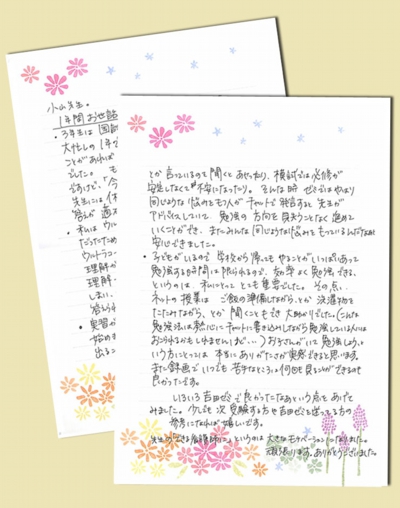 小山先生。
1年間お世話
・3年生は 国試
ことがあれば
でした。も
ですけど、「今
先生には 体
・私は ウル
だったため
ウルトラコー
理解が
理解
しまい、
・実習が
始め
出る
とか 言っているのを 聞くと あせったり、模試では 必修が
安定しなくて 不安になったり。そんな時 ゼミでは やはり
同じような 悩みをもつ人が チャットで 発言すると 先生が
アドバイスしていて、勉強の 方向を 見失うことなく 進めて
いくことができ、またみんな 同じような悩みを もっているんだなぁと
安心できました。
・子どもがいるので 学校から 帰っても やることが いっぱいあって
勉強する時間は 限られるので、効率よく 勉強できる、
というのは 私にとって とても重要でした。その点、
ネットの 授業は ご飯の準備しながら、とか 洗濯物を
たたみながら、とか 聞くことも でき 大助かりでした。(こんな
勉強法は 熱心に チャットに 書き込みしながら 勉強している人には
おこられるかもしれませんね…) お子さんがいて 勉強しよう、と
いう方に とっては 本当に ありがたさが 実感できると思います。
また 録画で いつでも 苦手なところを 何回も 見ることが できるのも
良かったです。
いろいろ 吉田ゼミで 良かったなぁという点を あげて
みました。少しでも 次 受験する方や 吉田ゼミを 迷ってる方の
参考になれば 嬉しいです。
"先生ができる看護師に"というのは 大きなモチベーションになりました。
頑張ります。ありがとうございました。